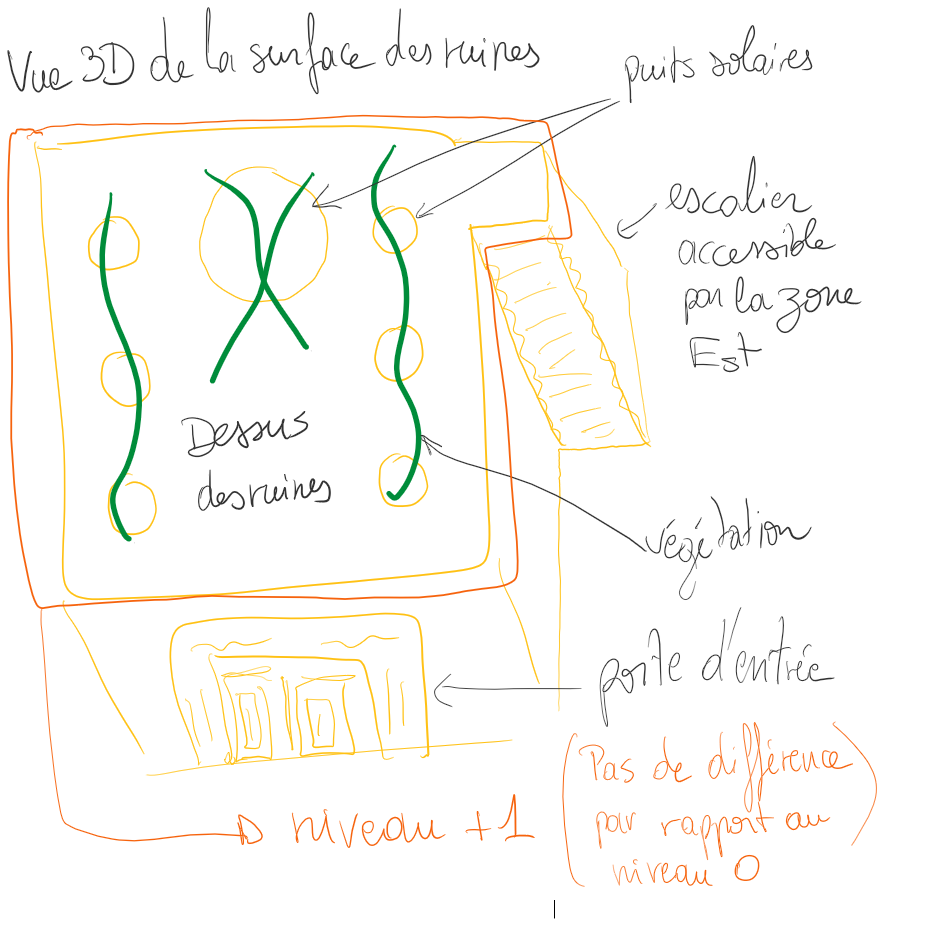 Vue 3D de la surface des ruines
puits solaires
escalier
accessible
par la zone
Est
Dessus
des ruines
végétation
porte d'entrée
(Pas de différence
par rapport au
niveau 0)
niveau +1